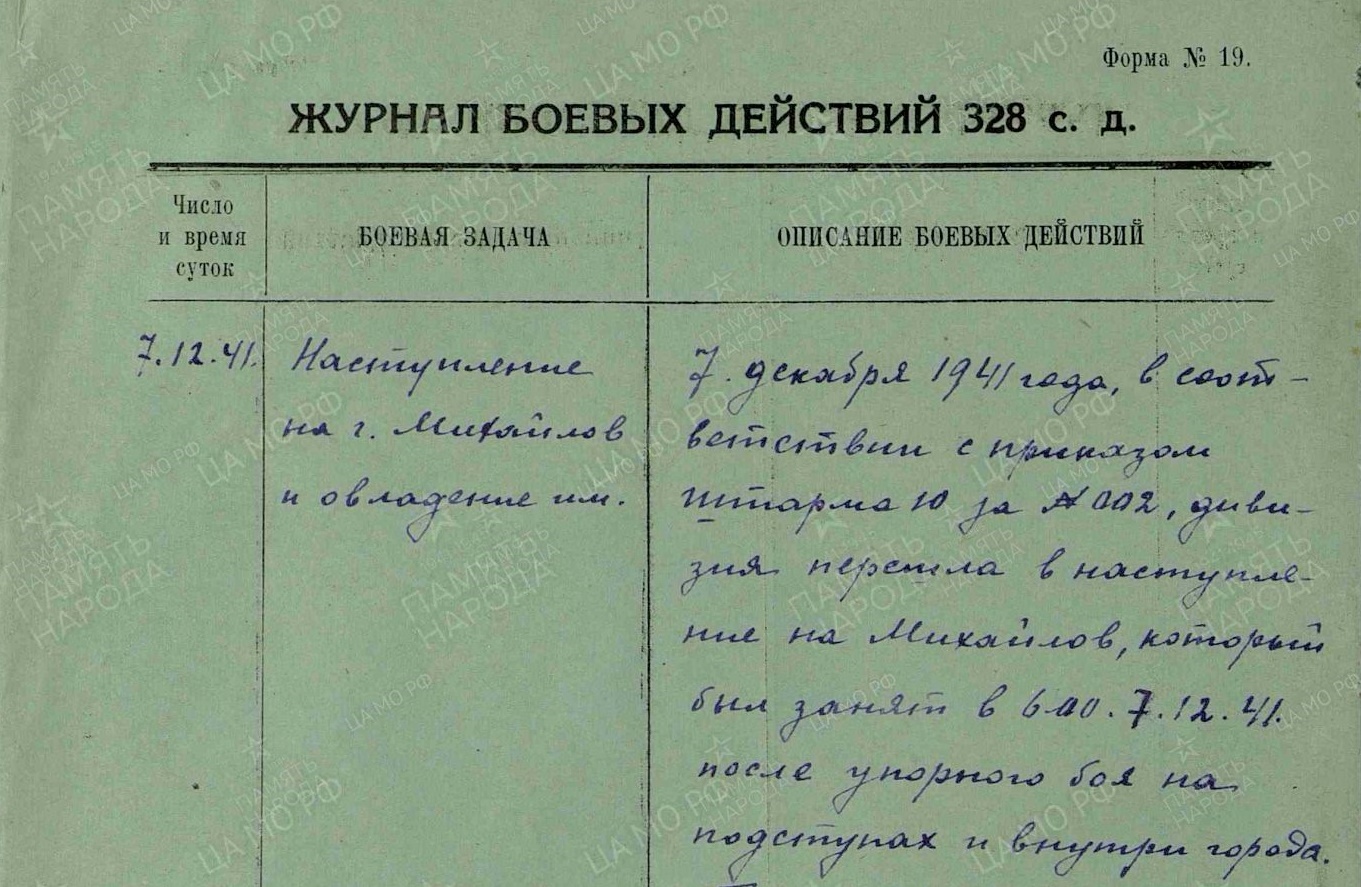 Форма № 19.
ЖУРНАЛ БОЕВЫХ ДЕЙСТВИЙ 328 с. д.
Число
и время
суток
БОЕВАЯ ЗАДАЧА
ОПИСАНИЕ БОЕВЫХ ДЕЙСТВИЙ
7.12.41.
Наступление
на г. Михайлов
и овладение им.
7. декабря 1941 года, в соот-
ветствии с приказом
Штарма 10 за № 002, диви-
зия перешла в наступле-
ние на Михайлов, который
был занят в 6.00. 7.12.41.
после упорного боя на
подступах и внутри города.
ЦА МО РФ
ПАМЯТЬ
НАРОДА